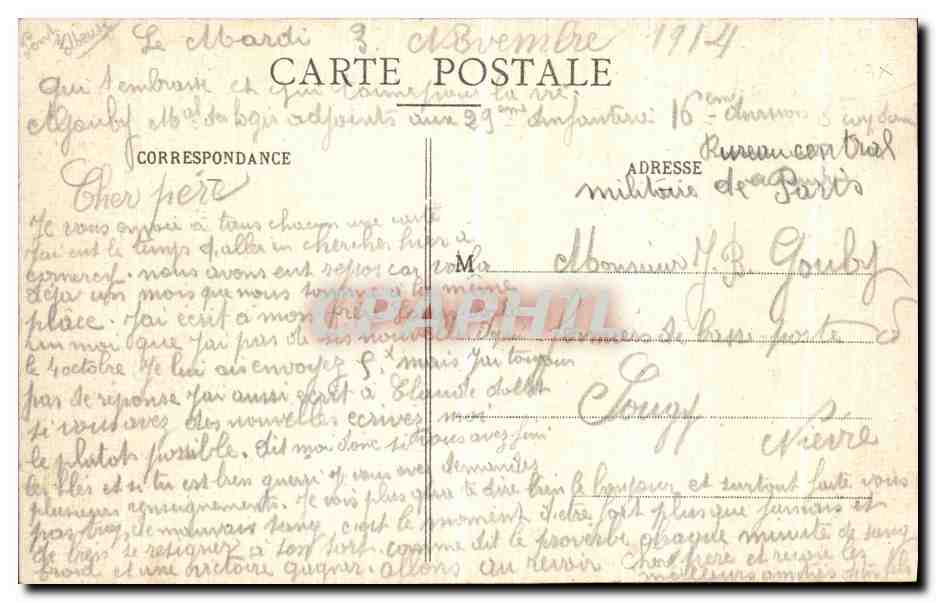 Le Mardi 3 Novembre 1914
CARTE POSTALE
qui t'embrasse et qui t'aime pour la vie
AGouby Mal des logis adjoints aux 29eme d'infanterie 16eme division
Bureau central
CORRESPONDANCE
ADRESSE
militaire de Paris
Cher père
Je vous envoie à tous chacun une carte
j'ai eut le temps d'aller en chercher hier à
comercy. nous avons eut repos car voila
déja un mois que nous sommes à la même
place. J'ai ecrit à mon frère
M
Monsieur J. B. Gouby
CPAPHIL
un moi que j'ai pas de ses nouvelles
le 4 octobre Je lui ais envoyez 5. mais j'ai toujours
de basse porte à
pas de réponse j'ai aussi ecrit à Claude
Sougy
si vous avez des nouvelles ecrivez moi
Nievre
le plutots possible. dit moi donc si vous avez fini
les blés et si tu est bien gueri. vous avez demandez
plusieurs renseignements. Je vois plus qua te dire bien le bonjour et surtout faite vous
pas trop de mauvais sang c'est le moment d'etre fort plus que jamais et
de bien se resigner à son sort. comme dit le proverbe chaque minute de sang
froid et une victoire gagner. allons au revoir Cher père et recoie les
meilleurs amitiés de ton fils